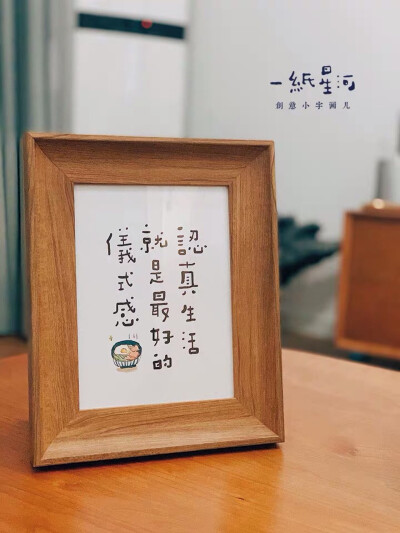 一紙星河
創意小字画儿
認真生活
就是最好的
儀式感